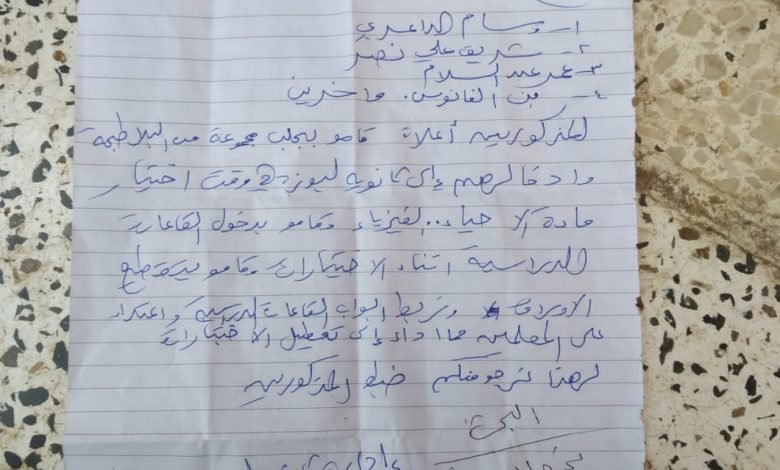 ١- وسام الداعري
٢- شريف علي نصر
٣- عمر عبد السلام
٤- بن الفانوس. واخرين
المذكورين أعلاة قامو بجلب مجموعة من البلاطجة
وادخالرهم إلى ثانويه لبوزة وقت اختبار
مادة الاحياء.. الفيزياء وقامو بدخول القاعات
الدراسية اثناء الاختبارات وقامو بتقطيع
الاوراق وتربط ابواب القاعات الدراسية واعتداء
على المعلمين مما اداء إلى تعطيل الاختبارات
لهذا نرجو منكم ضبط المذكورين